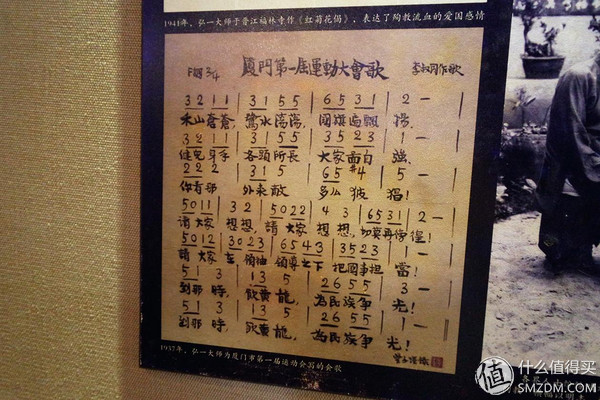 1941年，弘一大师于晋江福林寺作《红菊花偈》，表达了殉教流血的爱国感情
廈門第一屆運動大會歌
F調 3/4
李叔同作歌
3 2 1 1 | 3 1 5 5 | 6 5 3 1 | 2 - |
禾山蒼蒼，鷺水蕩蕩，國旗遍飄揚。
3 2 1 1 | 3 1 5 5 | 3 5 2 3 | 1 - |
健兒身手 各顯所長 大家面自強。
2 2 2 | 3 1 5 | 6 5 #4 | 5 - |
你看那 外來敵 多么狓猖！
5 0 1 1 | 3 2 | 5 0 2 2 | 4 3 | 6 5 3 1 | 2 -
請大家 想想，請大家 想想，切莫再徬徨！
5 0 1 2 | 3 0 2 3 | 6 5 4 3 | 3 5 2 3 | 1 - |
請大家 在領袖 領導之下 把國事担當！
5 1 3 | 1 3 5 | 2 6 5 5 | 1 - |
到那時，飲黃龍，為民族爭光！
5 1 3 | 1 3 5 | 2 6 5 5 | 1 - |
到那時，飲黃龍，為民族爭光！
1937年，弘一大师为厦门市第一届运动会写的会歌
值 什么值得买